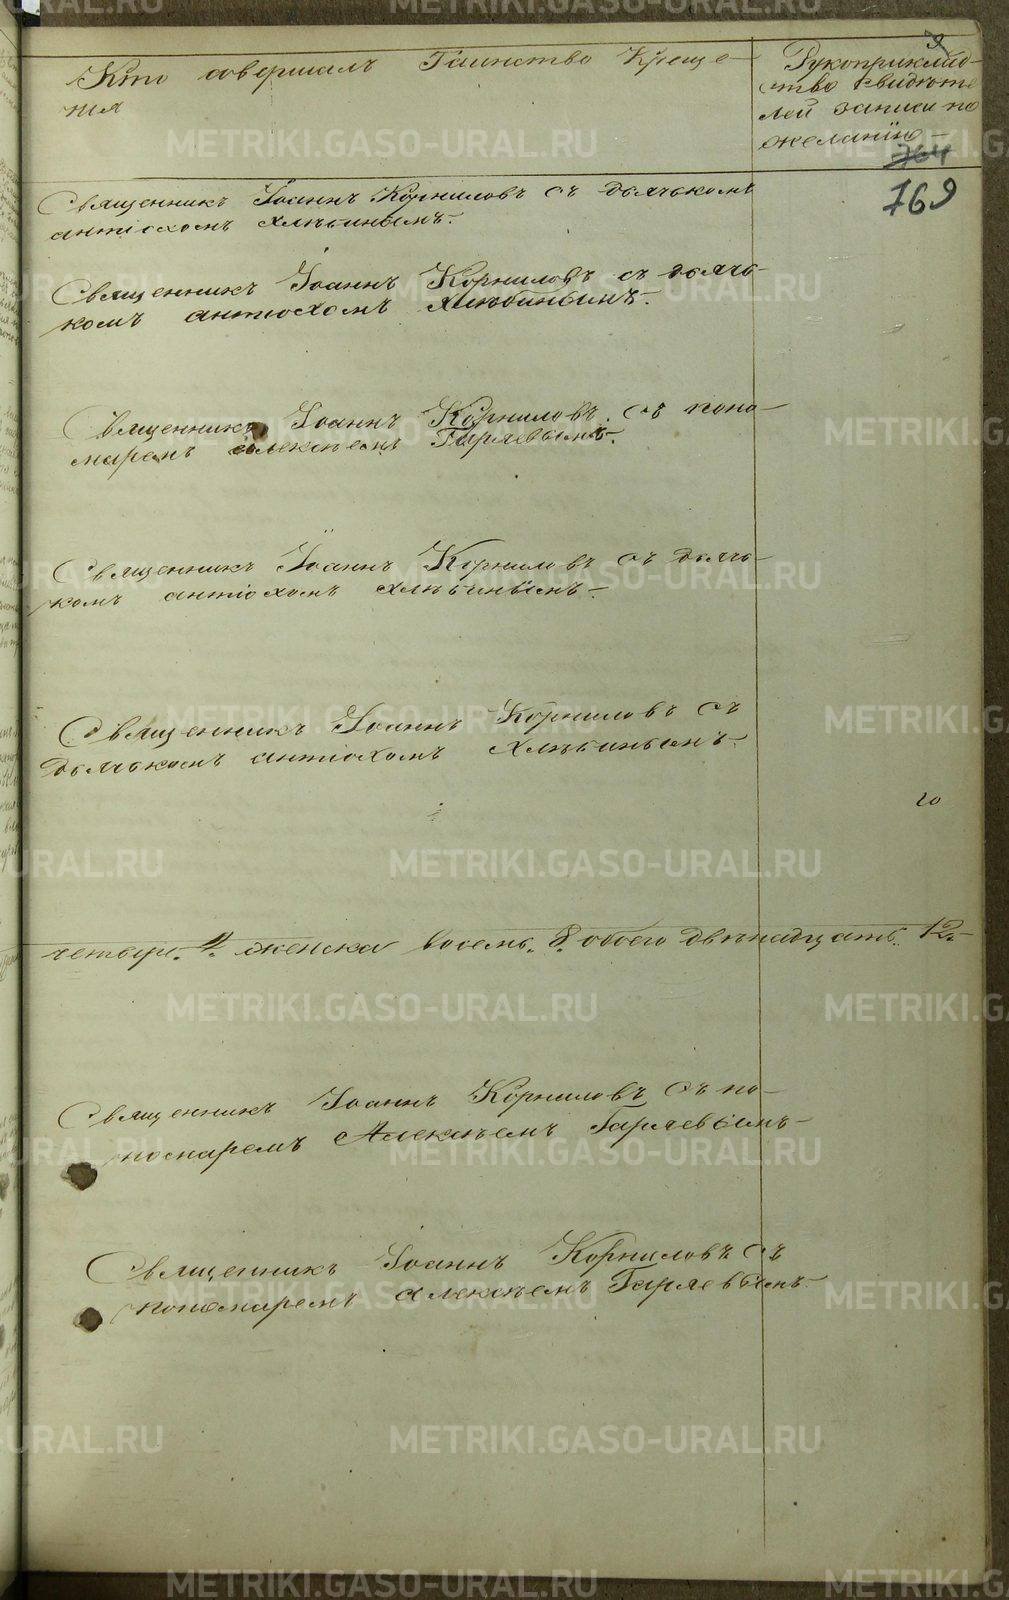 Кто совершалъ Таинство Креще-
нія
Рукоприклад-
ство свидѣте
лей записи по
желанію
9
764
769
Священникъ Іоаннъ Корниловъ съ дьячькомъ
антіохомъ Хлѣбинымъ.
Священникъ Іоаннъ Корниловъ съ дьячь-
комъ антіохомъ Хлѣбинымъ.
Священникъ Іоаннъ Корниловъ съ поно-
маремъ алексѣемъ Гаряевымъ.
Священникъ Іоаннъ Корниловъ съ дьячь-
комъ антіохомъ Хлѣбинымъ.
Священникъ Іоаннъ Корниловъ съ
дьячькомъ антіохомъ Хлѣбинымъ.
четыре. 4. женска восемь. 8. обоего двѣнадцать. 12.
Священникъ Іоаннъ Корниловъ съ по-
номаремъ Алексѣемъ Гаряевымъ
Священникъ Іоаннъ Корниловъ съ
пономаремъ алексѣемъ Гаряевымъ
METRIKI.GASO-URAL.RU